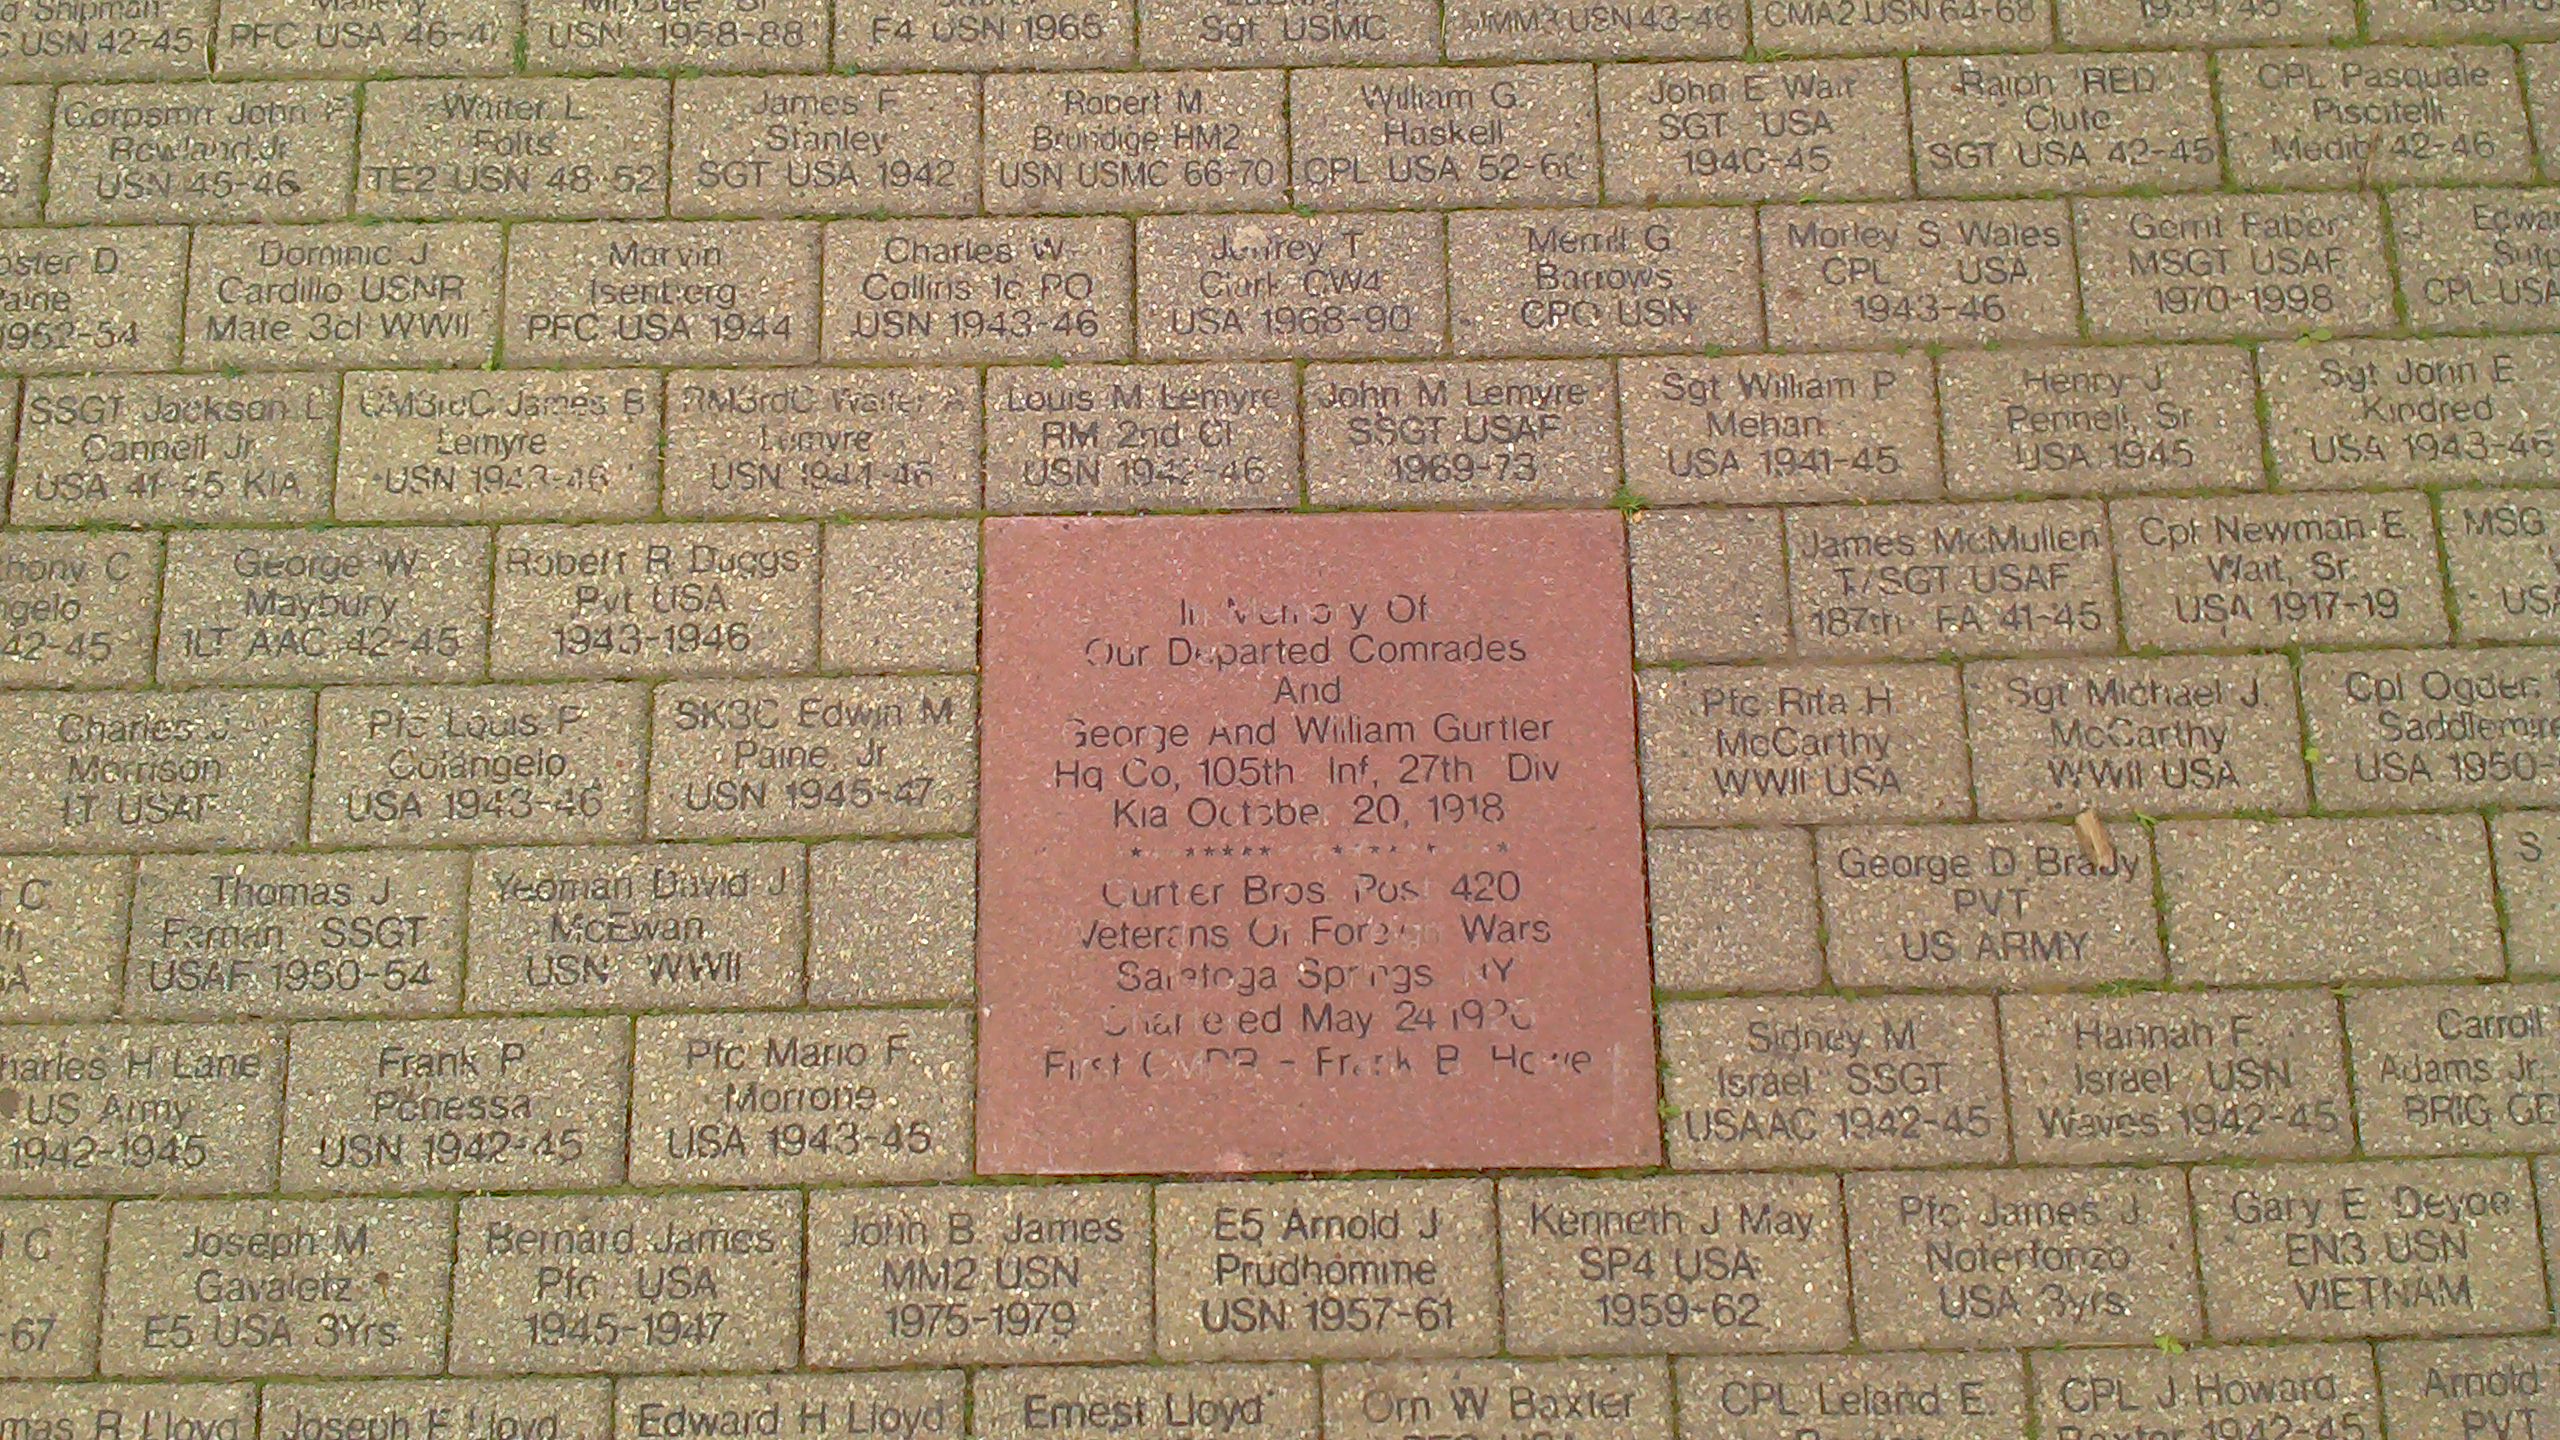 Shipman
USN 42-45
PFC USA 46-4
USN 1958-88
E4 USN 1965
Sgt USMC
USN 43-46
CMA2 USN 64-68
Corpsmn John F
Rowland Jr
USN 45-46
Walter L
Folts
TE2 USN 48-52
James F
Stanley
SGT USA 1942
Robert M
Brundige HM2
USN USMC 66-70
William G
Haskell
CPL USA 52-60
John E Wait
SGT USA
1940-45
Ralph "RED"
Clute
SGT USA 42-45
CPL Pasquale
Piscitelli
Medic 42-46
D
Paine
1952-54
Dominic J
Cardillo USNR
Mate 3cl WWII
Marvin
Isenberg
PFC USA 1944
Charles W
Collins 1c PO
USN 1943-46
Jeffrey T
Clark CW4
USA 1968-90
Merrill G
Barrows
CPO USN
Morley S Wales
CPL USA
1943-46
Gerrit Faber
MSGT USAF
1970-1998
CPL USA
SSGT Jackson L
Cannell Jr
USA 41-45 KIA
James B
Lemyre
USN 1943-46
RM3rdC Walter A
Lemyre
USN 1944-46
Louis M Lemyre
RM 2nd Cl
USN 1942-46
John M Lemyre
SSGT USAF
1969-73
Sgt William P
Mehan
USA 1941-45
Henry J
Pennell, Sr
USA 1945
Sgt John E
Kindred
USA 1943-46
C
42-45
George W
Maybury
1LT AAC 42-45
Robert R Duggs
Pvt USA
1943-1946
In Memory Of
Our Departed Comrades
And
George And William Gurtler
Hq Co, 105th Inf, 27th Div
Kia October 20, 1918
Gurtler Bros. Post 420
Veterans Of Foreign Wars
Saratoga Springs NY
Chartered May 24 192
First CMDR - Frank B Howe
James McMullen
T/SGT USAF
187th FA 41-45
Cpl Newman E
Wait, Sr.
USA 1917-19
MSG
Charles J
Morrison
LT USAF
Pfc Louis F.
Colangelo
USA 1943-46
SK3C Edwin M
Paine, Jr
USN 1945-47
Pfc Rita H
McCarthy
WWII USA
Sgt Michael J.
McCarthy
WWII USA
Cpl Ogden
Saddlemire
USA 1950-
C
Thomas J
Farnan SSGT
USAF 1950-54
Yeoman David J
McEwan
USN WWII
George D Brady
PVT
US ARMY
S
Charles H Lane
US Army
1942-1945
Frank P.
Ponessa
USN 1942-45
Pfc Mario F.
Morrone
USA 1943-45
Sidney M
Israel SSGT
USAAC 1942-45
Hannah F.
Israel USN
Waves 1942-45
Carroll
Adams Jr
BRIG GE
C
-67
Joseph M.
Gavaletz
E5 USA 3Yrs
Bernard James
Pfc USA
1945-1947
John B. James
MM2 USN
1975-1979
E5 Arnold J
Prudhomme
USN 1957-61
Kenneth J May
SP4 USA
1959-62
Pfc James J
Noterfonzo
USA 3yrs
Gary E. Deyoe
EN3 USN
VIETNAM
R Lloyd
Joseph F Lloyd
Edward H Lloyd
Ernest Lloyd
Orn W Baxter
CPL Leland E.
CPL J Howard
Baxter 1942-45
Arnold
PVT